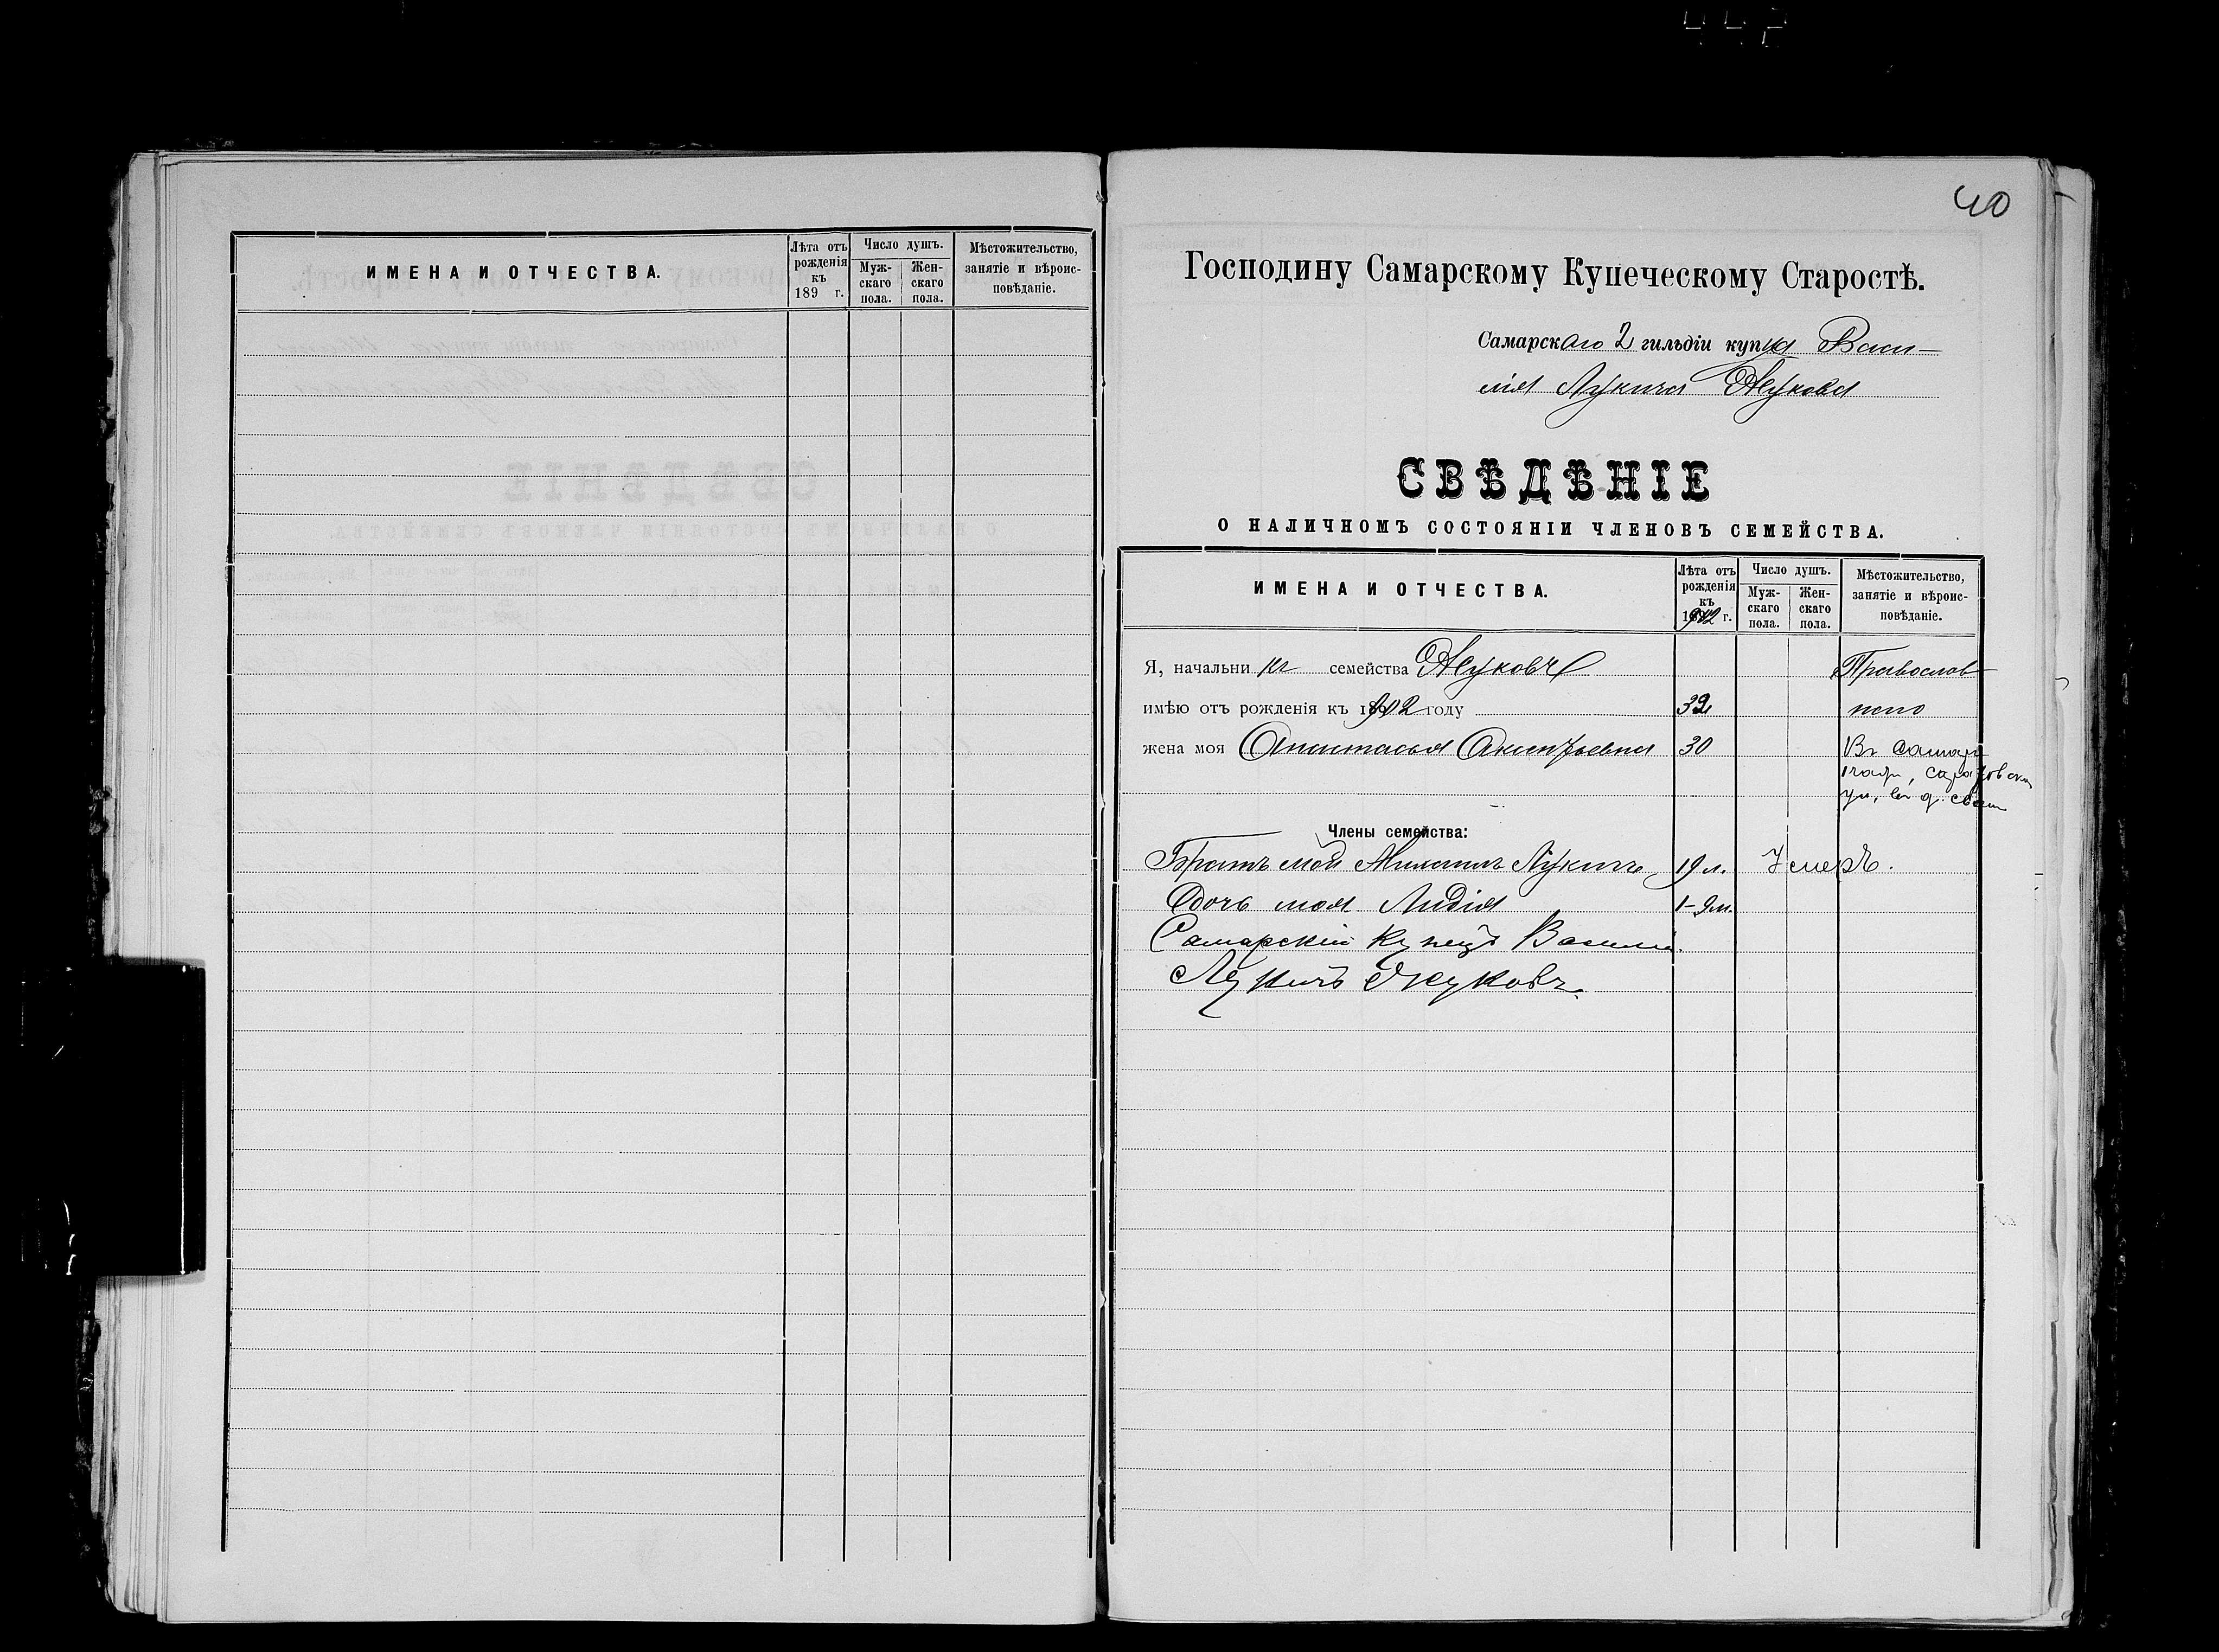 442
ИМЕНА И ОТЧЕСТВА.
Лѣта отъ рожденія къ 189 г.
Число душъ.
Мужскаго пола.
Женскаго пола.
Мѣстожительство, занятіе и вѣроисповѣданіе.
40
Господину Самарскому Купеческому Старостѣ.
Самарскаго 2 гильдіи купца Васи-
лія Лукича Жукова
СВѢДѢНІЕ
О НАЛИЧНОМЪ СОСТОЯНІИ ЧЛЕНОВЪ СЕМЕЙСТВА.
ИМЕНА И ОТЧЕСТВА.
Лѣта отъ рожденія къ 1902 г.
Число душъ.
Муж-
скаго
пола.
Жен-
скаго
пола.
Мѣстожительство,
занятіе и вѣроис-
повѣданіе.
Я, начальникъ семейства Жуковъ Православ
имѣю отъ рожденія къ 1902 году 32 наго
жена моя Анастасья 30 Въ Самарѣ
1 части, саратовская
ул. въ д. своем
Члены семейства:
Братъ мой Лукичъ 19 л. Умеръ.
Дочь моя Лидія 1-9 м.
Самарскій Купецъ Василій
Лукичъ Жуковъ